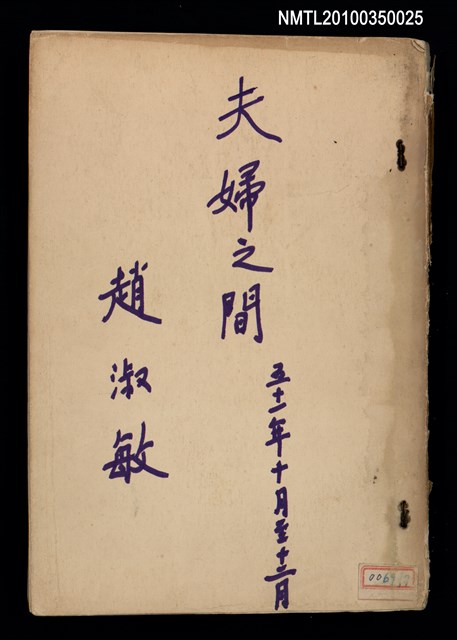 NMTL20100350025
夫婦之間
五十一年十月至十二月
趙淑敏